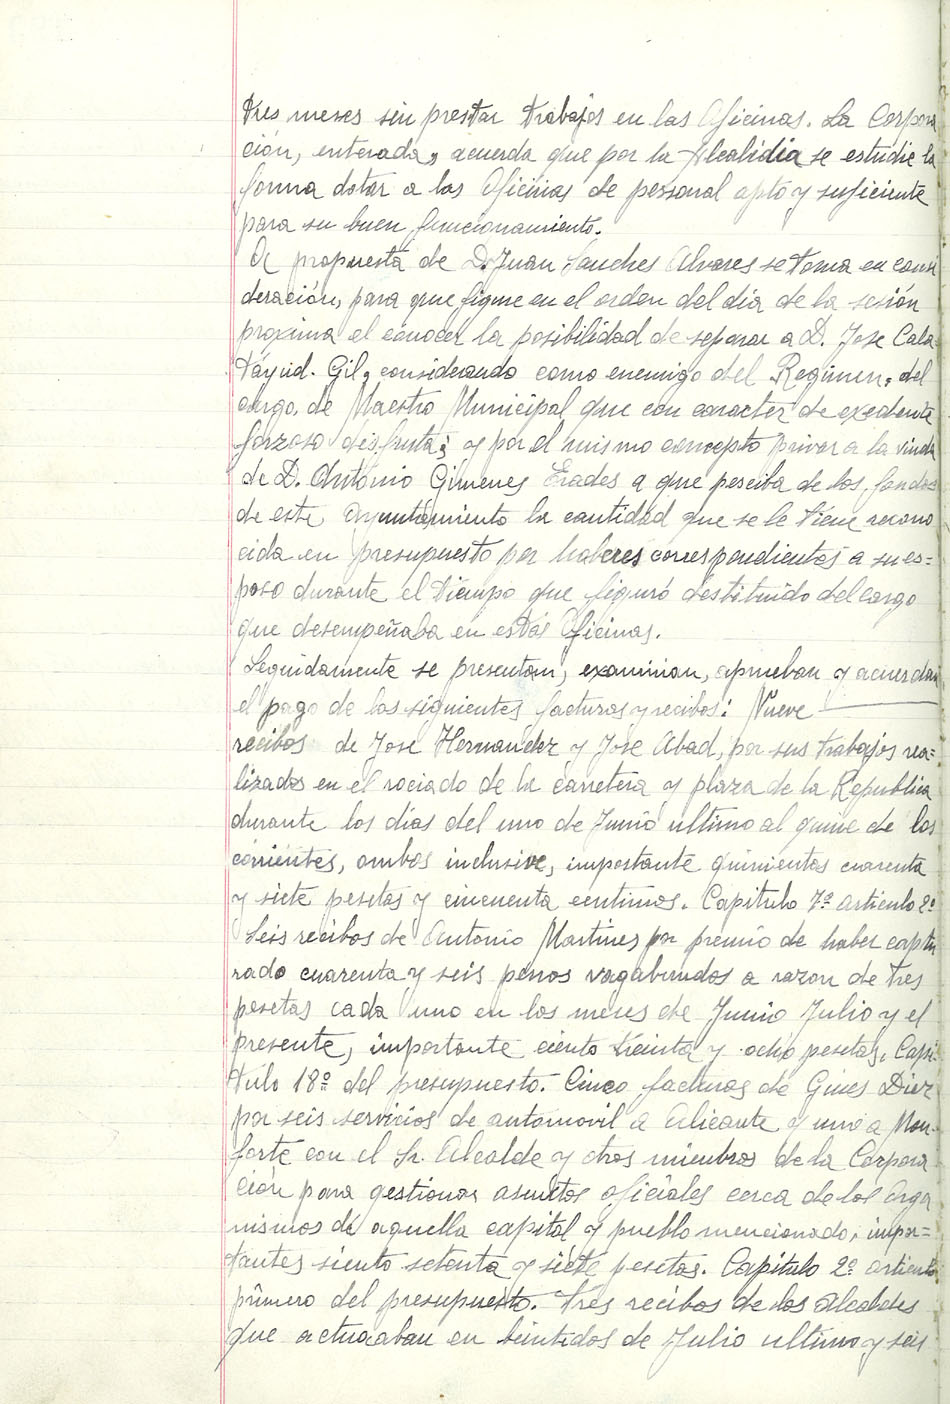 tres meses sin prestar trabajos en las Oficinas. La Corpora
ción, enterada, acuerda que por la Alcaldia se estudie la
forma dotar a las Oficinas de personal apto y suficiente
para su buen funcionamiento.
A propuesta de D. Juan Sanches Alvares se toma en consi
deración, para que figure en el orden del dia de la sesión
proxima el conocer la posibilidad de separar a D. Jose Cala
tayud. Gil, considerando como enemigo del Regimen, del
cargo de Maestro Municipal que con caracter de exedente
forzoso disfruta; y por el mismo concepto privar a la viuda
de D. Antonio Gimenes Erades a que perciba de los fondos
de este Ayuntamiento la cantidad que se le tiene recono
cida en presupuesto por haberes correspondientes a su es=
poso durante el tiempo que figuró destituido del cargo
que desempeñaba en estas Oficinas.
Seguidamente se presentan, examinan, aprueban y acuerdan
el pago de las siguientes facturas y recibos: Nueve
recibos de Jose Hernandez y Jose Abad, por sus trabajos rea=
lizados en el rociado de la carretera y plaza de la Republica
durante los dias del uno de Junio ultimo al quince de los
corrientes, ambos inclusive, importante quinientas cuarenta
y siete pesetas y cincuenta centimos. Capitulo 7º articulo 2º
Seis recibos de Antonio Martines por premio de haber captu
rado cuarenta y seis perros vagabundos a razon de tres
pesetas cada uno en los meses de Junio Julio y el
presente, importante ciento treinta y ocho pesetas. Capi
tulo 18º del presupuesto. Cinco facturas de Gines Diez
por seis servicios de automovil a Alicante y uno a Mon-
forte con el Sr. Alcalde y otros miembros de la Corpora
ción para gestionar asuntos oficiales cerca de los Orga
nismos de aquella capital y pueblo mencionado, impor=
tantes siento setenta y siete pesetas. Capitulo 2º articulo
primero del presupuesto. Tres recibos de los Alcaldes
que actuaban en beintidos de Julio ultimo y seis